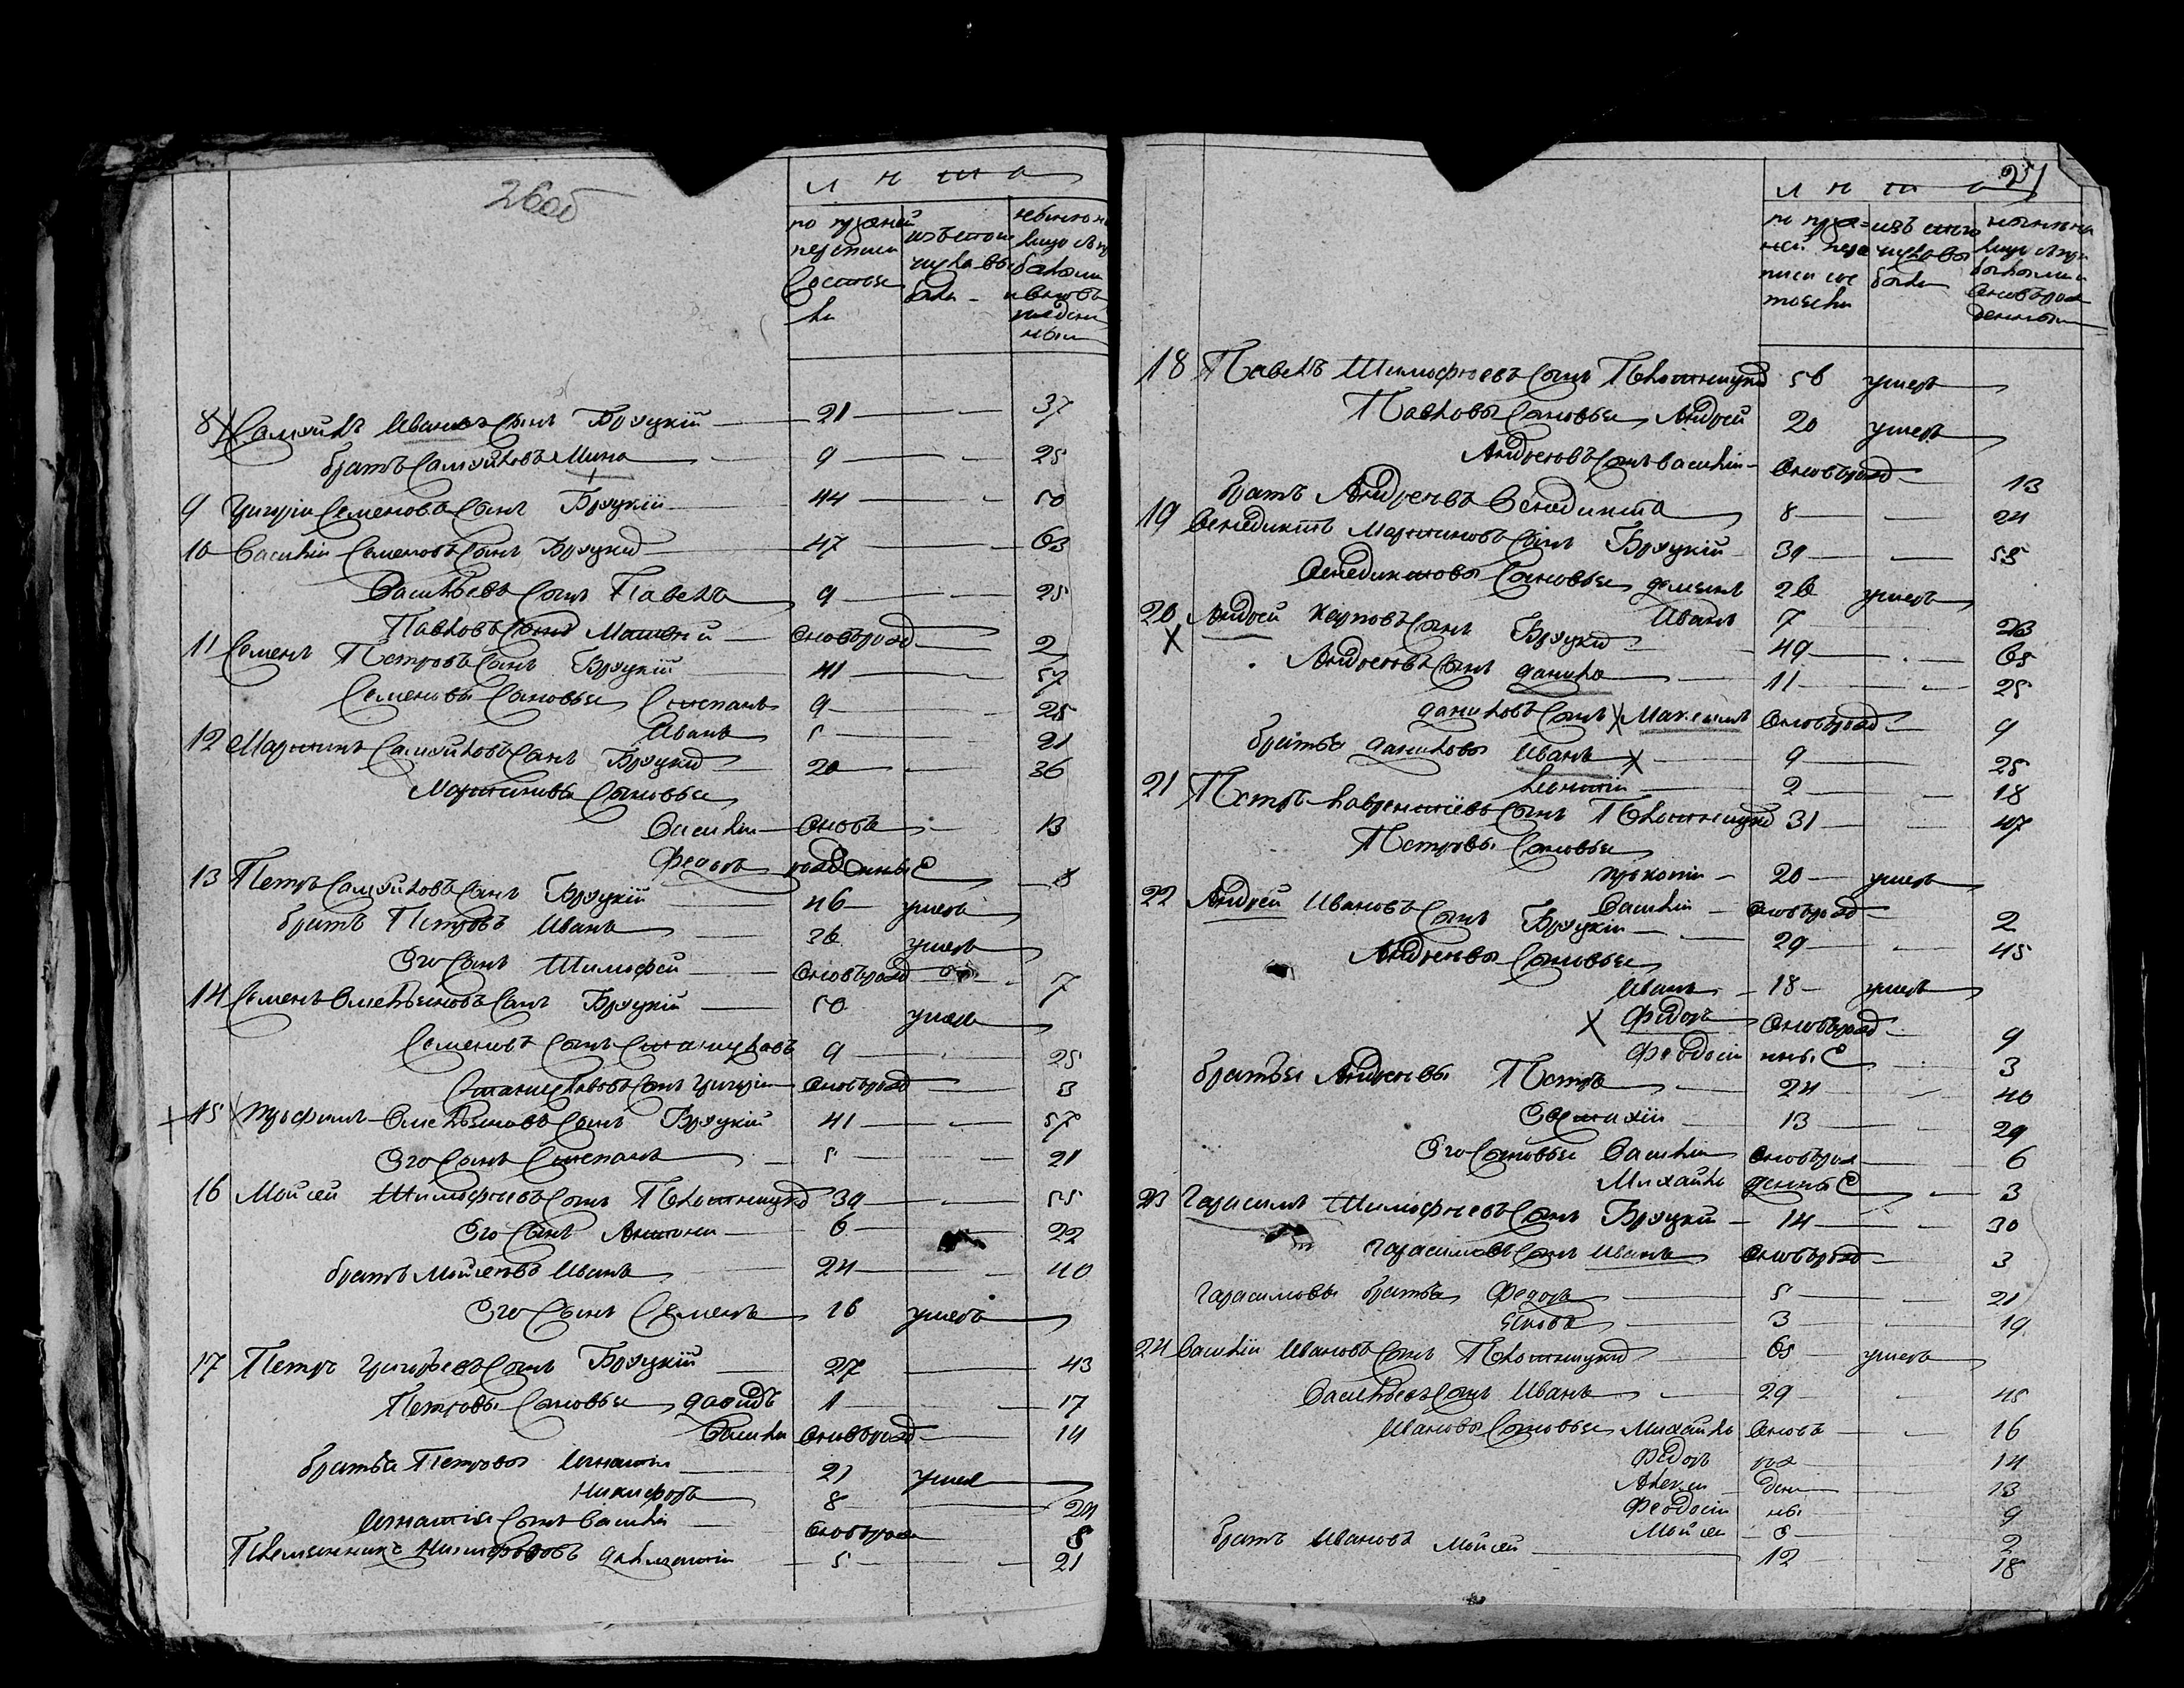 26об
лѣта
по прежней
переписи
состоя
ли
изъ того
числа вы
были
прибыли
и вновь
рожден
ныи
8 Самуйлъ Ивановъ сынъ Бруцкій 21 37
братъ Самуйловъ Мина 9 25
9 Григорій Семеновъ сынъ Бруцкій 44 50
10 Василій Семеновъ сынъ Бруцкій 47 63
Васильевъ сынъ Павелъ 9 25
Павловъ сынъ Матвей вновьрожд 2
11 Семенъ Петровъ сынъ Бруцкій 41 57
Семеновы сыновья Степанъ 9 25
Иванъ 5 21
12 Мартинъ Самуйловъ сынъ Бруцкій 20 36
Мартиновы сыновья
Василій вновь 13
Федоръ рожденные 8
13 Петръ Самуйловъ сынъ Бруцкій 46 умеръ
братъ Петровъ Иванъ 36 умеръ
Его сынъ Тимофей вновьрожд 7
14 Семенъ Омельяновъ сынъ Бруцкій 50 умеръ
Семеновъ сынъ Станиславъ 9 25
Станиславовъ сынъ Григорій вновьрожд 3
15 Трофимъ Омельяновъ сынъ Бруцкій 41 57
Его сынъ Степанъ 5 21
16 Мойсей Тимофѣевъ сынъ Плотницкій 39 55
Его сынъ Антони 6 22
братъ Мойсеевъ Иванъ 24 40
Его сынъ Семенъ 16 умеръ
17 Петръ Григорьевъ сынъ Бруцкій 27 43
Петровы сыновья Давидъ 1 17
Василій вновьрожд 14
братья Петровы Игнатій 21 умеръ
Никифоръ 8 24
Игнатія сынъ Василій вновьрожд 8
Племянникъ Никифоровъ 5 21
27
лѣта
по преж=
ней пере
писи сос
тояли
изъ того
числа вы
были
прибыли
вновьрож
денныи
18 Павелъ Тимофѣевъ сынъ Плотницкій 56 умеръ
Павловы сыновья Андрей 20 умеръ
Андреевъ сынъ Василій вновьрожд 13
братъ Андреевъ Венедикта 8 24
19 Венедиктъ Мартиновъ сынъ Бруцкій 39 55
Венедиктовы сыновья Демьянъ 26 умеръ
Иванъ 7 23
20 Андрей Карповъ сынъ Бруцкій 49 65
Андреевъ сынъ Данило 11 25
Даниловъ сынъ Максимъ вновьрожд 9
братья Даниловы Иванъ 9 25
Леонтій 2 18
21 Петръ Лаврентіевъ сынъ Плотницкій 31 47
Петровы сыновья
Прокопій 20 умеръ
Василій вновьрожд 2
22 Андрей Ивановъ сынъ Бруцкій 29 45
Андреевы сыновья
Иванъ 18 умеръ
Федоръ вновьрожд 9
Феодосій нные 3
братья Андреевы Петръ 24 40
Евстахій 13 29
Его сыновья Василій вновьрож 6
Михайло денные 3
23 Гарасимъ Тимофѣевъ сынъ Бруцкій 14 30
Гарасимовъ сынъ Иванъ вновьрожд 3
Гарасимовы братья Федоръ 5 21
Яковъ 3 19
24 Василій Ивановъ сынъ Плотницкій 65 умеръ
Васильевъ сынъ Иванъ 29 45
Ивановы сыновья Михайло вновь 16
Федоръ рож 14
Алексей ден 13
Феодосій ны 9
Мойсей е 2
братъ Ивановъ Мойсей 12 18